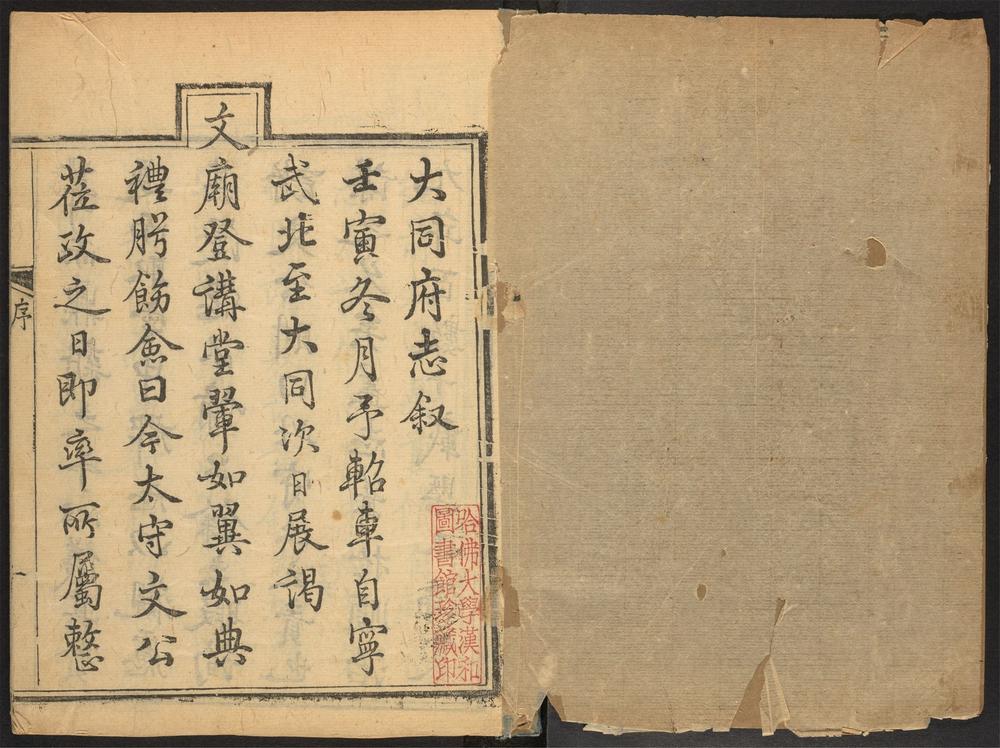 大同府志叙
壬寅冬月予軺車自寧
武北至大同次日展謁
文廟登講堂翬如翼如典
禮胯飭僉曰今太守文公
莅政之日即率所屬整
序
哈佛大學漢和
圖書館珍藏印